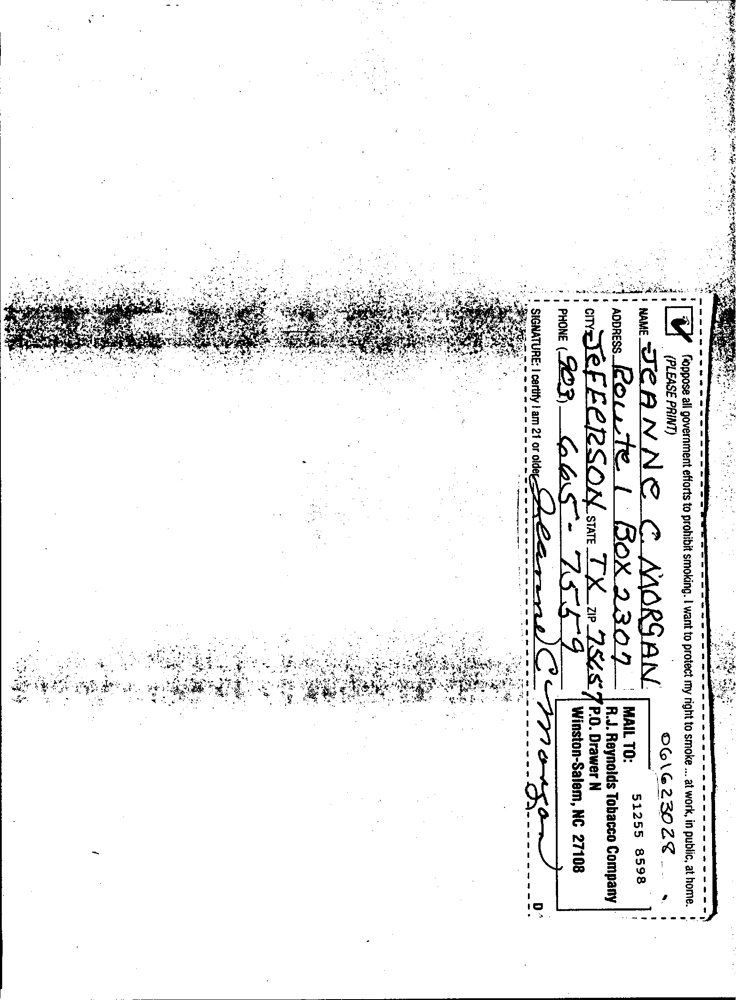 ✓ I oppose all government efforts to prohibit smoking. I want to protect my right to smoke ... at work, in public, at home.
(PLEASE PRINT)
061623028
NAME JEANNE C. MORGAN
ADDRESS Route 1 BOX 2307
CITY JEFFERSON STATE TX ZIP 75657
PHONE (903) 665-7559
SIGNATURE: I certify I am 21 or older Jeanne C. Morgan
51255 8598
MAIL TO:
R.J. Reynolds Tobacco Company
P.O. Drawer N
Winston-Salem, NC 27108
D